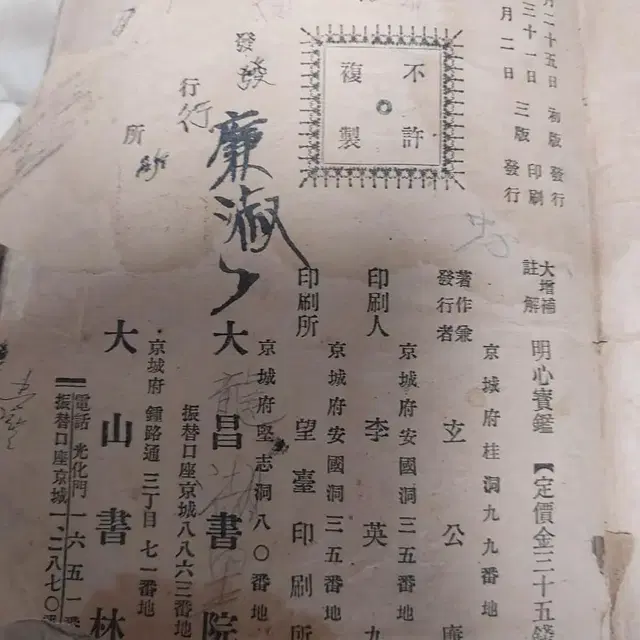 月二十五日 初版 發行
三十一日 三版 印刷
月二日 三版 發行
不許
複製
大增補
註解 明心寶鑑 【定價金三十五錢
京城府桂洞九九番地
著作兼
發行者 玄公廉
京城府安國洞三五番地
印刷人 李英九
京城府安國洞三五番地
印刷所 望臺印刷所
發行所
京城府堅志洞八〇番地
大昌書院
振替口座京城八八六三番地
京城府鍾路通三丁目七一番地
大山書林
電話光化門一六五一番
振替口座京城一二八七〇番
發
行
廉淑